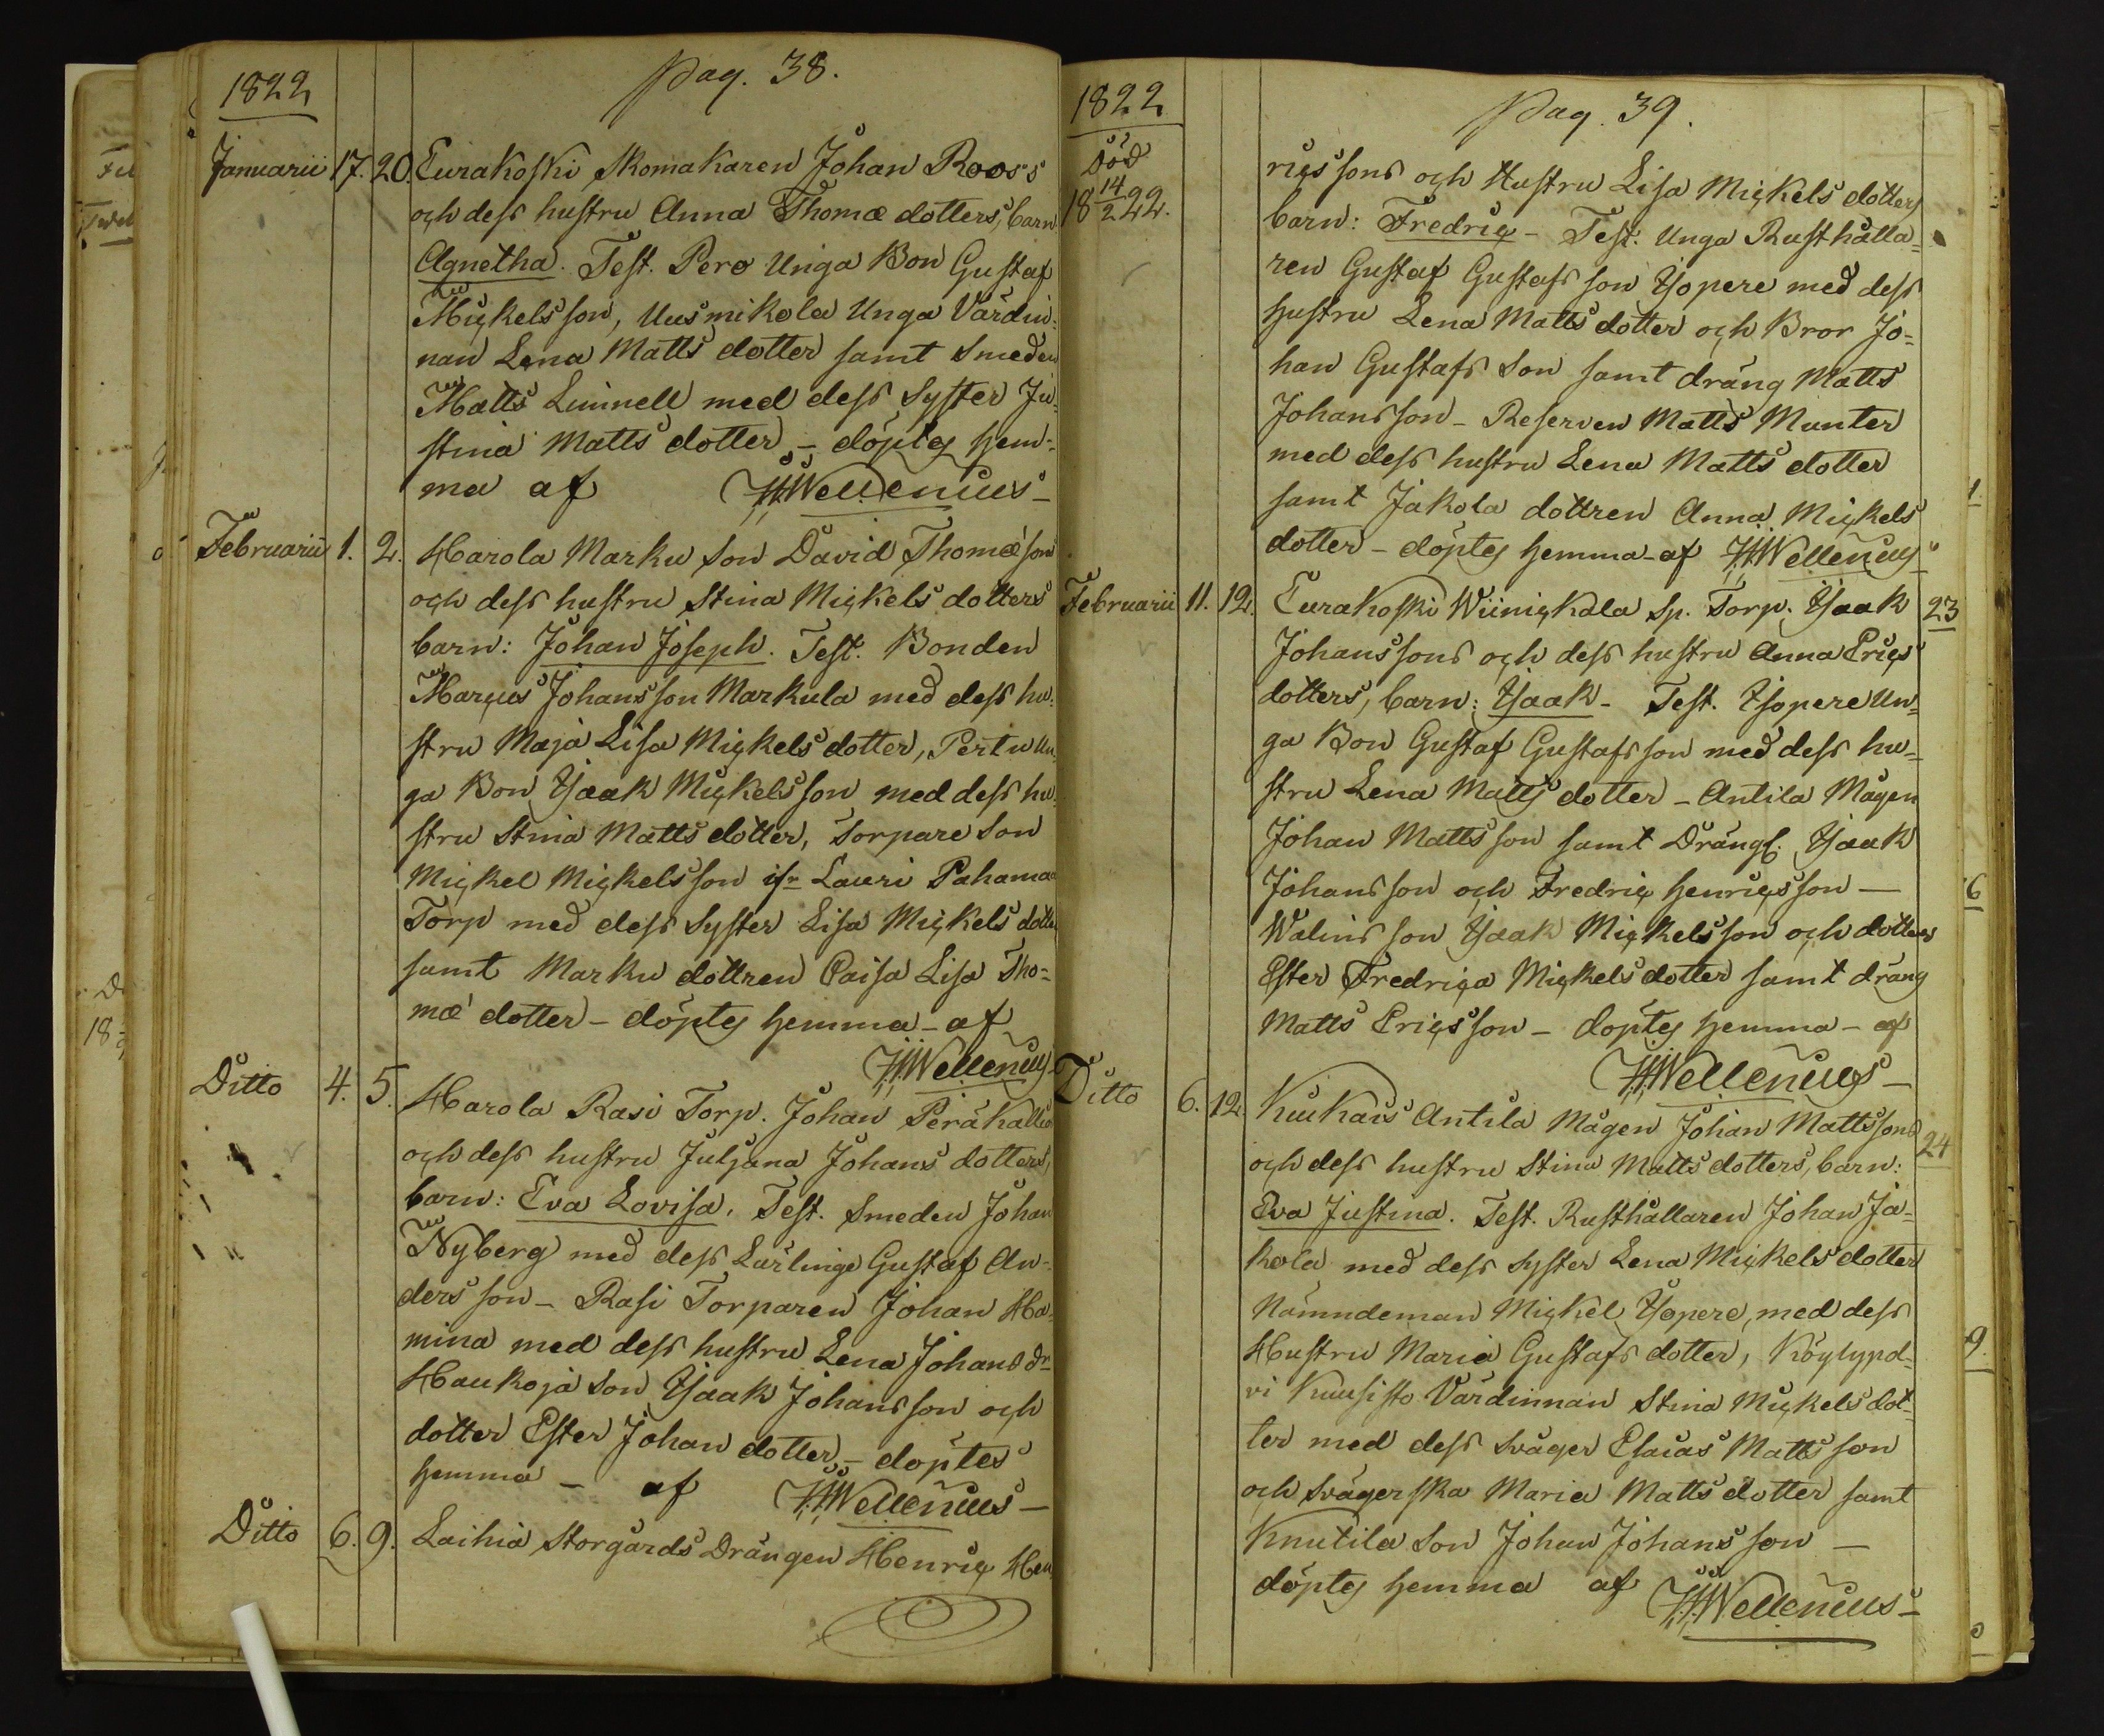 Pag. 38.
1822
Januarii 17. 20. Eurakoski Skomakaren Johan Rooss
och dess hustru Anna Thomæ dotters, barn
Agnetha. Test. Pero Unga Bon Gustaf
Mickelsson, Uusmikola Unga Värdin-
nan Lena Matts dotter samt Smeden
Matts Linnell med dess Syster Ju-
stina Matts dotter – döptes hem-
ma af HHWellenius –
Februarii 1. 2. Harola Marku Son David Thomæ son
och dess hustru Stina Mickels dotters
barn: Johan Joseph. Test. Bonden
Marcus Johansson Markula med dess hu-
stru Maja Lisa Mickels dotter, Pertu Un-
ga Bon Isaak Mickelsson med dess hu-
stru Stina Matts dotter, Torpare Son
Mickel Mickelsson ifr. Lauri Pahamaa
Torp med dess Syster Lisa Mickels dotter
samt Marku dottren Caisa Lisa Tho-
mæ dotter – döptes hemma – af
HHWellenius –
Ditto 4. 5. Harola Rasi Torp. Johan Peräkallio
och dess hustru Juljana Johans dotters,
barn: Eva Lovisa. Test. Smeden Johan
Nyberg med dess Lärlinge Gustaf An-
ders son – Rasi Torparen Johan Ha-
mina med dess hustru Lena Johans dr
Haukoja Son Isaak Johansson och
dotter Ester Johan dotter – döptes
hemma – af HHWellenius –
Ditto 6. 9. Laihia Storgårds Drängen Henric Hen
Pag. 39.
1822
död
18 14/2 22.
ricssons och Hustru Lisa Mickels dotters
barn: Fredric – Test. Unga Rusthålla-
ren Gustaf Gustafs son Isopere med dess
hustru Lena Matts dotter och Bror Jo-
han Gustafs Son samt dräng Matts
Johansson – Reserven Matts Munter
med dess hustru Lena Matts dotter
samt Jakola dottren Anna Mickels
dotter – döptes hemma – af HHWellenius
Februarii 11. 12. Eurakoski Wiinickala Sp. Torp. Isaak 23
Johanssons och dess hustru Anna Erics
dotters, barn: Isaak – Test. Isopere Un-
ga Bon Gustaf Gustafsson med dess hu-
stru Lena Matts dotter – Antila Mågen
Johan Mattsson samt Drängs. Isaak
Johansson och Fredric Henricsson –
Walins son Isaak Mickelsson och dotters
Ester Fredrica Mickels dotter samt dräng
Matts Ericsson – döptes hemma – af
HHWellenius –
Ditto 6. 12. Kiukais Antila Mågen Johan Mattssons 24
och dess hustru Stina Matts dotters, barn:
Eva Justina. Test. Rusthållaren Johan Ja-
kola med dess Syster Lena Mickels dotter
Nämndeman Mickel Isopere, med dess
Hustru Maria Gustafs dotter, Köylypol-
vi Kuusisto Värdinnan Stina Mickels dot-
ter med dess Svåger Esaias Matts son
och Svägerska Maria Matts dotter samt
Knutila Son Johan Johansson –
döptes hemma af HHWellenius –